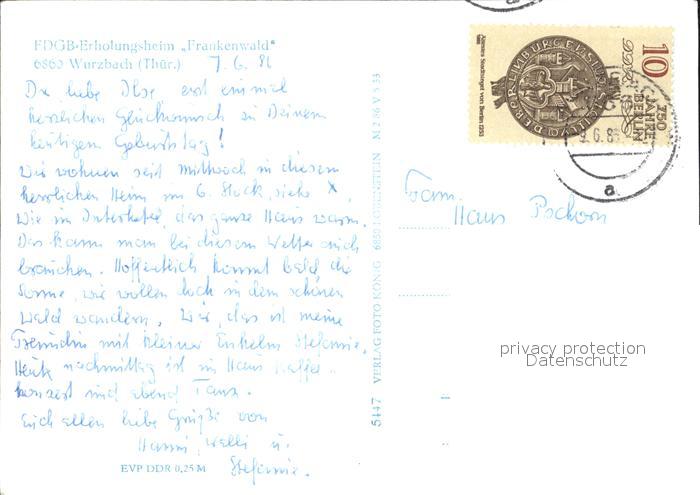 FDGB-Erholungsheim „Frankenwald"
6860 Wurzbach (Thür.) 7.6.86
Du liebe Ilse erst einmal
herzlichen Glückwunsch zu Deinem
heutigen Geburtstag!
Wir wohnen seit Mittwoch in diesem
herrlichen Heim im 6. Stock, siehe X,
Wie im Interhotel, das ganze Haus warm.
Das kann man bei diesem Wetter auch
brauchen. Hoffentlich kommt bald die
Sonne, wir wollen doch in dem schönen
Wald wandern. Wir, das ist meine
Freundin mit kleiner Enkelin Stefanie.
Heute nachmittag ist im Haus Kaffee-
konzert und abend Tanz.
Euch allen liebe Grüße von
Hanni, Welli u.
Stefanie.
EVP DDR 0,25 M
5147 VERLAG FOTO KÖNIG 6850 LOBENSTEIN N 2 86 V 5 53
Fam.
Hans Pschorn
10
750
JAHRE
BERLIN
Ältestes Stadtsiegel von Berlin 1253
9.6.86
a
privacy protection
Datenschutz